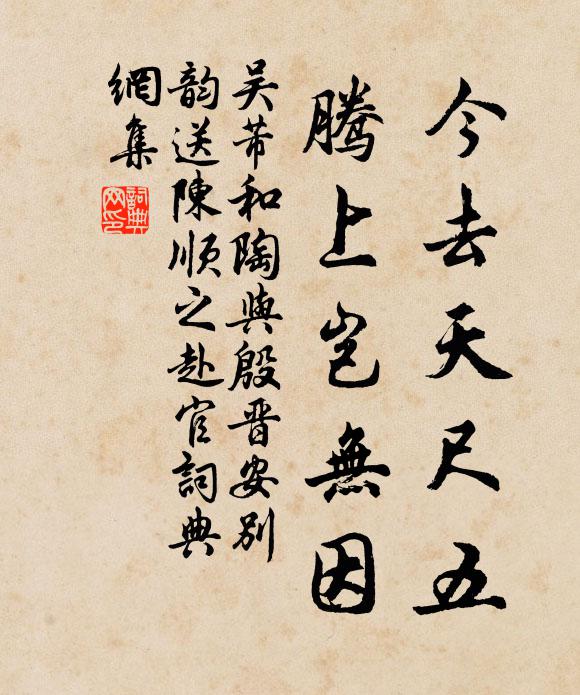 今去天尺五
腾上岂無因
吴芾和陶與殷晋安别
韵送陳順之赴官詞典
網集
詞典
网印